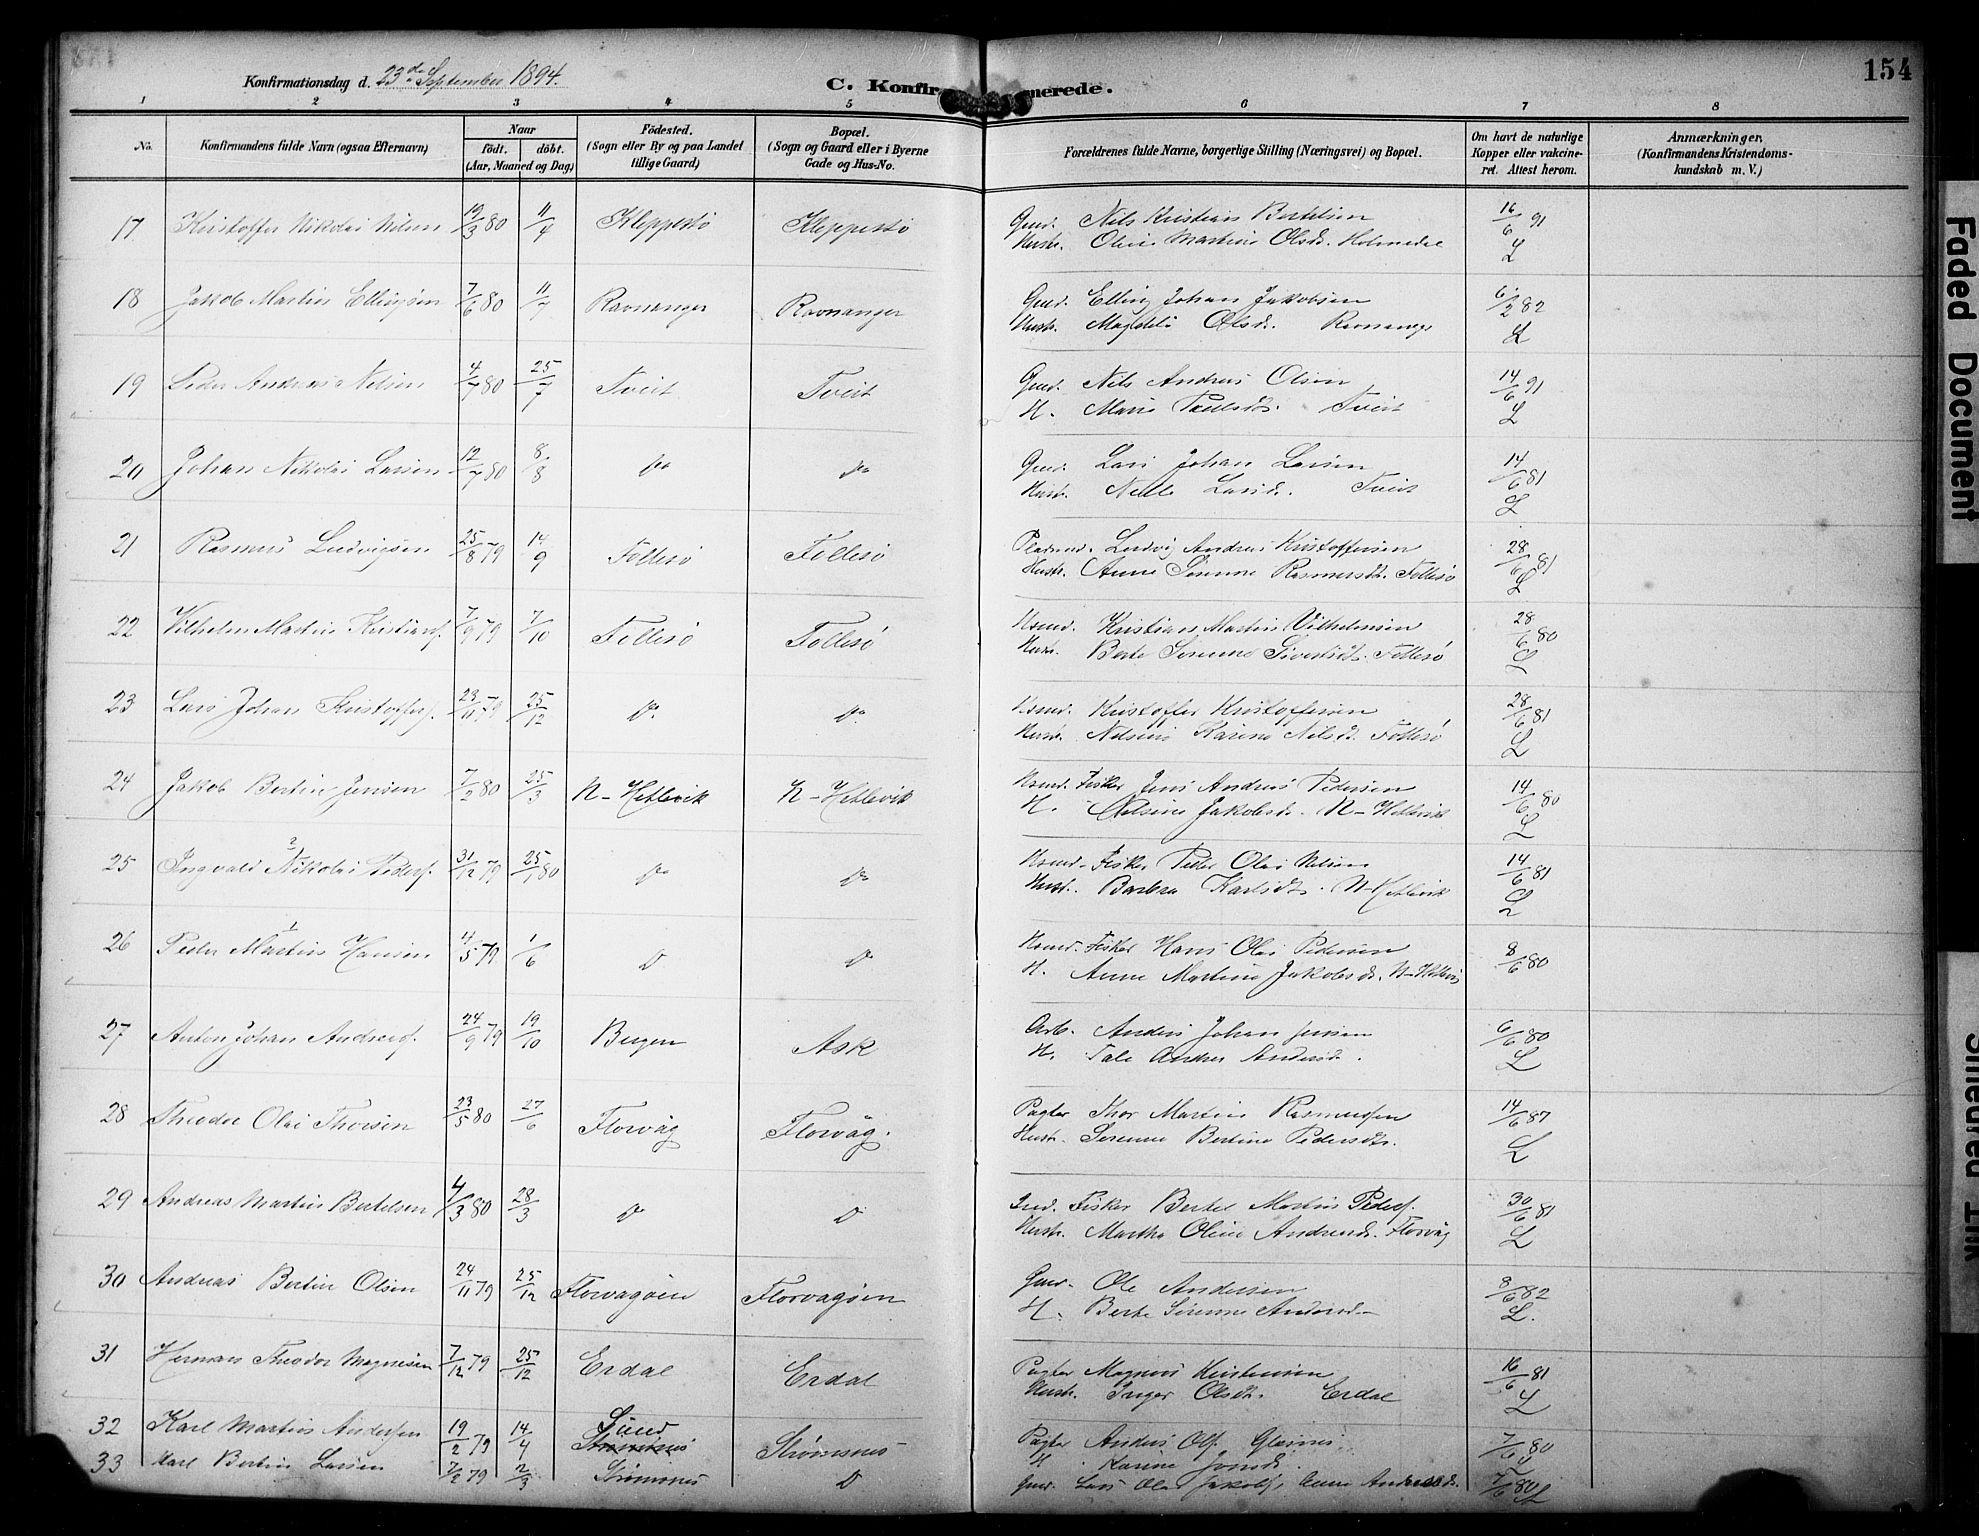 154
Konfirmationsdag d. 23de September 1894.
C. Konfir merede.
1 2 3 4 5 6 7 8
No.
Konfirmandens fulde Navn (ogsaa Efternavn)
Naar
födt. döbt.
(Aar, Maaned og Dag)
Födested.
(Sogn eller By og paa Landet
tillige Gaard)
Bopæl.
(Sogn og Gaard eller i Byerne
Gade og Hus-No.
Forældrenes fulde Navne, borgerlige Stilling (Næringsvei) og Bopæl.
Om havt de naturlige
Kopper eller vakcine-
ret. Attest herom.
Anmærkninger,
(Konfirmandens Kristendoms-
kundskab m. V.)
17 Kristoffer Nikolai Nilsen 19/3 80 11/4 Kleppestö Kleppestö Gmd. Nils Kristian Bertelsen 16/6 91
Hustr. Oline Martine Olsd. Holmedal L
18 Jakob Martin Ellingsen 7/6 80 11/7 Ravnanger Ravnanger Gmd. Elling Johan Jakobsen 6/2 82
Hustr. Magdel. Olsd. Ravnanger L
19 Peder Andreas Nilsen 4/7 80 25/7 Tveit Tveit Gmd. Nils Andreas Olsen 14/6 91
H. Marie Paulsdt. Tveit L
20 Johan Nikolai Larsen 12/7 80 8/8 Do Do Gmd. Lars Johan Larsen 14/6 81
Hustr. Nille Larsd. Tveit L
21 Rasmus Ludvigsen 25/8 79 14/9 Follesö Follesö Pladsmd. Ludvig Andreas Kristoffersen 28/6 81
Hustr. Anne Serenne Rasmusdt. Follesö L
22 Vilhelm Martin Kristians. 7/9 79 7/10 Follesö Follesö Husmd. Kristian Martin Vilhelmsen 28/6 80
Hustr. Berte Serenne Sivertsdt. Follesö L
23 Lars Johan Kristoffers. 23/11 79 25/12 Do Do Husmd. Kristoffer Kristoffersen 28/6 81
Hustr. Nilsine Karine Nilsd. Follesö L
24 Jakob Bertin Jensen 7/2 80 25/3 N-Hetlevik N-Hetlevik Husmd. Fisker Jens Andreas Pedersen 14/6 80
H. Nilsine Jakobsd. N-Hetlevik L
25 Ingvald Nikolai Peders. 2 31/12 79 25/1 80 Do Do Husmd. Fisker Peder Olai Nilsen 14/6 81
Hustr. Barbra Karlsdt. N-Hetlevik L
26 Peder Martin Hansen 1 4/5 79 1/6 D Do Husmd. Fisker Hans Olai Pedersen 8/6 80
H. Anne Martine Jakobsd. N-Hetlevik
27 Anton Johan Anders. 24/9 79 19/10 Bergen Ask Arb. Anders Johan Jensen 6/6 80
H. Tale Andrea Andersd. L
28 Theodor Olai Thorsen 23/5 80 27/6 Florvåg Florvåg. Pagter Thor Martin Rasmussen 14/6 87
Hustr. Serenne Bertine Pedersdt. L
29 Andreas Martin Bertelsen 4/3 80 28/3 Do D Fisker Bertel Martin Peders. 30/6 81
Hustr. Martha Oline Andreasd. Florvåg L
30 Andreas Bertin Olsen 24/11 79 25/12 Florvagöen Florvagöen Gmd. Ole Andersen 8/6 82
H. Berte Serenne Andersd. L.
31 Herman Theodor Magnesen 7/12 79 25/12 Erdal Erdal Pagter Magnus Kristensen 16/6 81
Hustr. Inger Olsdt. Erdal L
32 Karl Martin Anderssen 19/2 79 14/4 Sund Strömsnes Strömsnes Pagter Anders Ols. Glesnes 7/6 80
H. Karine Jonsd. L
33 Karl Bertin Larsen 7/2 79 2/3 Strömsnes D Gmd. Lars Olai Jakobs., Anne Andersd. 7/6 80 L
Faded Document
Smeared Ink